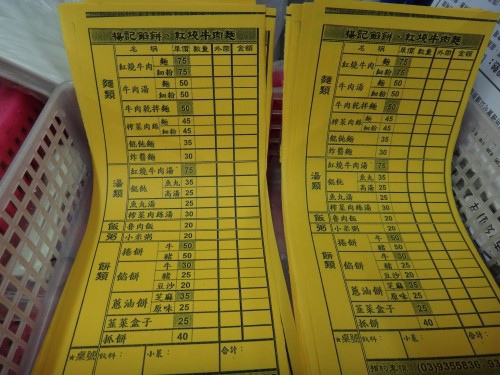 楊記餡餅、紅燒牛肉麵
名稱 單價 數量 外帶 金額
麵類
紅燒牛肉 麵 75
細粉 75
牛肉湯 麵 50
細粉 50
牛肉乾拌麵 50
榨菜肉絲 麵 45
細粉 45
餛飩麵 35
炸醬麵 30
湯類
紅燒牛肉湯 75
餛飩 魚丸 35
高湯 25
魚丸湯 25
榨菜肉絲湯 30
飯粥
魯肉飯 20
小米粥 20
餅類
捲餅 牛 50
豬 50
餡餅 牛 30
豬 25
豆沙 20
蔥油餅 芝麻 35
原味 25
韮菜盒子 25
抓餅 40
★桌號 飲料: 小菜: 合計:
楊記餡餅、紅燒牛肉麵
名稱 單價 數量 外帶 金額
麵類
紅燒牛肉 麵 75
細粉 75
牛肉湯 麵 50
細粉 50
牛肉乾拌麵 50
榨菜肉絲 麵 45
細粉 45
餛飩麵 35
炸醬麵 30
湯類
紅燒牛肉湯 75
餛飩 魚丸 35
高湯 25
魚丸湯 25
榨菜肉絲湯 30
飯粥
魯肉飯 20
小米粥 20
餅類
捲餅 牛 50
豬 50
餡餅 牛 30
豬 25
豆沙 20
蔥油餅 芝麻 35
原味 25
韮菜盒子 25
抓餅 40
★桌號 飲料: 小菜: 合計:
(03)9355836